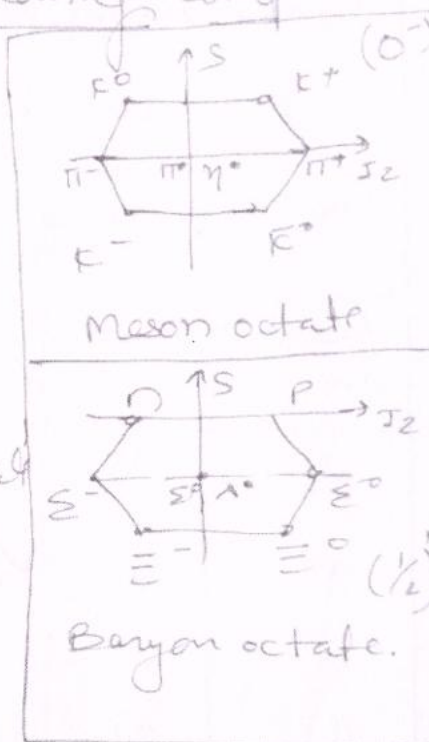 S (0⁻)
K⁰ K⁺
π⁻ π⁰ η⁰ π⁺ I₂
K⁻ K̅⁰
Meson octate
S
n P I₂
Σ⁻ Σ⁰ Λ⁰ Σ⁰
Ξ⁻ Ξ⁰
Baryon octate.